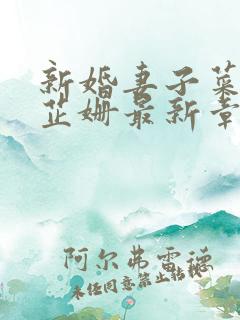 新婚妻子叶
芷姗最新章
阿尔弗雷德
未经同意禁止转载